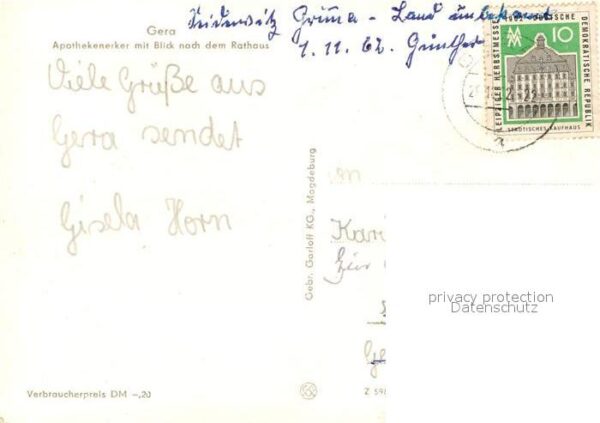 Gera
Apothekenerker mit Blick nach dem Rathaus
Grüna - Land unbekannt
1.11.62. Günther
Viele Grüße aus
Gera sendet
Gisela Horn
Gebr. Garloff KG., Magdeburg
LEIPZIGER HERBSTMESSE 1962
DEUTSCHE DEMOKRATISCHE REPUBLIK
MM
10
STÄDTISCHES KAUFHAUS
privacy protection
Datenschutz
Verbraucherpreis DM -,20